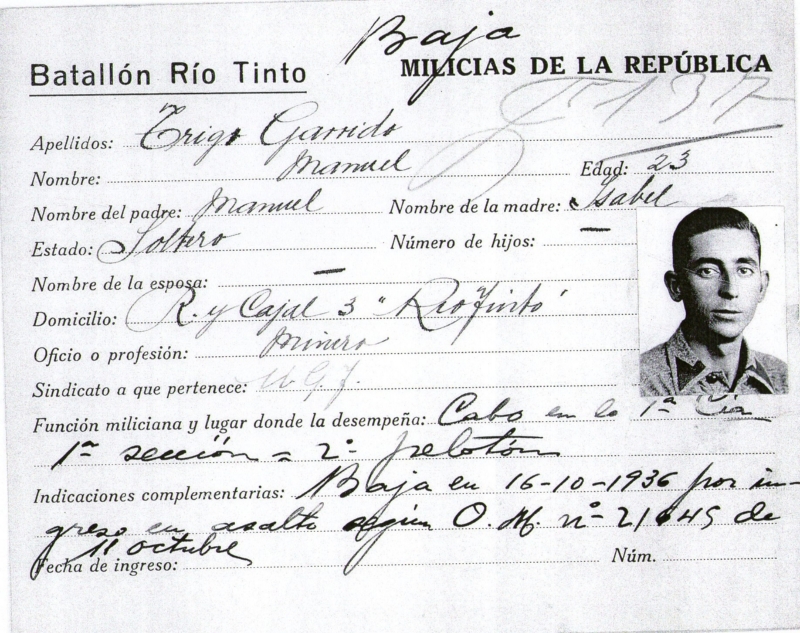 Baja
Batallón Río Tinto
MILICIAS DE LA REPÚBLICA
137
Apellidos: Trigo Garrido
Nombre: Manuel Edad: 23
Nombre del padre: Manuel Nombre de la madre: Isabel
Estado: Soltero Número de hijos: —
Nombre de la esposa: —
Domicilio: R. y Cajal 3 "Río Tinto"
Oficio o profesión: Minero
Sindicato a que pertenece: U.G.T.
Función miliciana y lugar donde la desempeña: Cabo en la 1ª Cía
1ª sección = 2º pelotón
Indicaciones complementarias: Baja en 16-10-1936 por in-
greso en asalto según O. M. nº de
11 octubre
Fecha de ingreso: Núm.